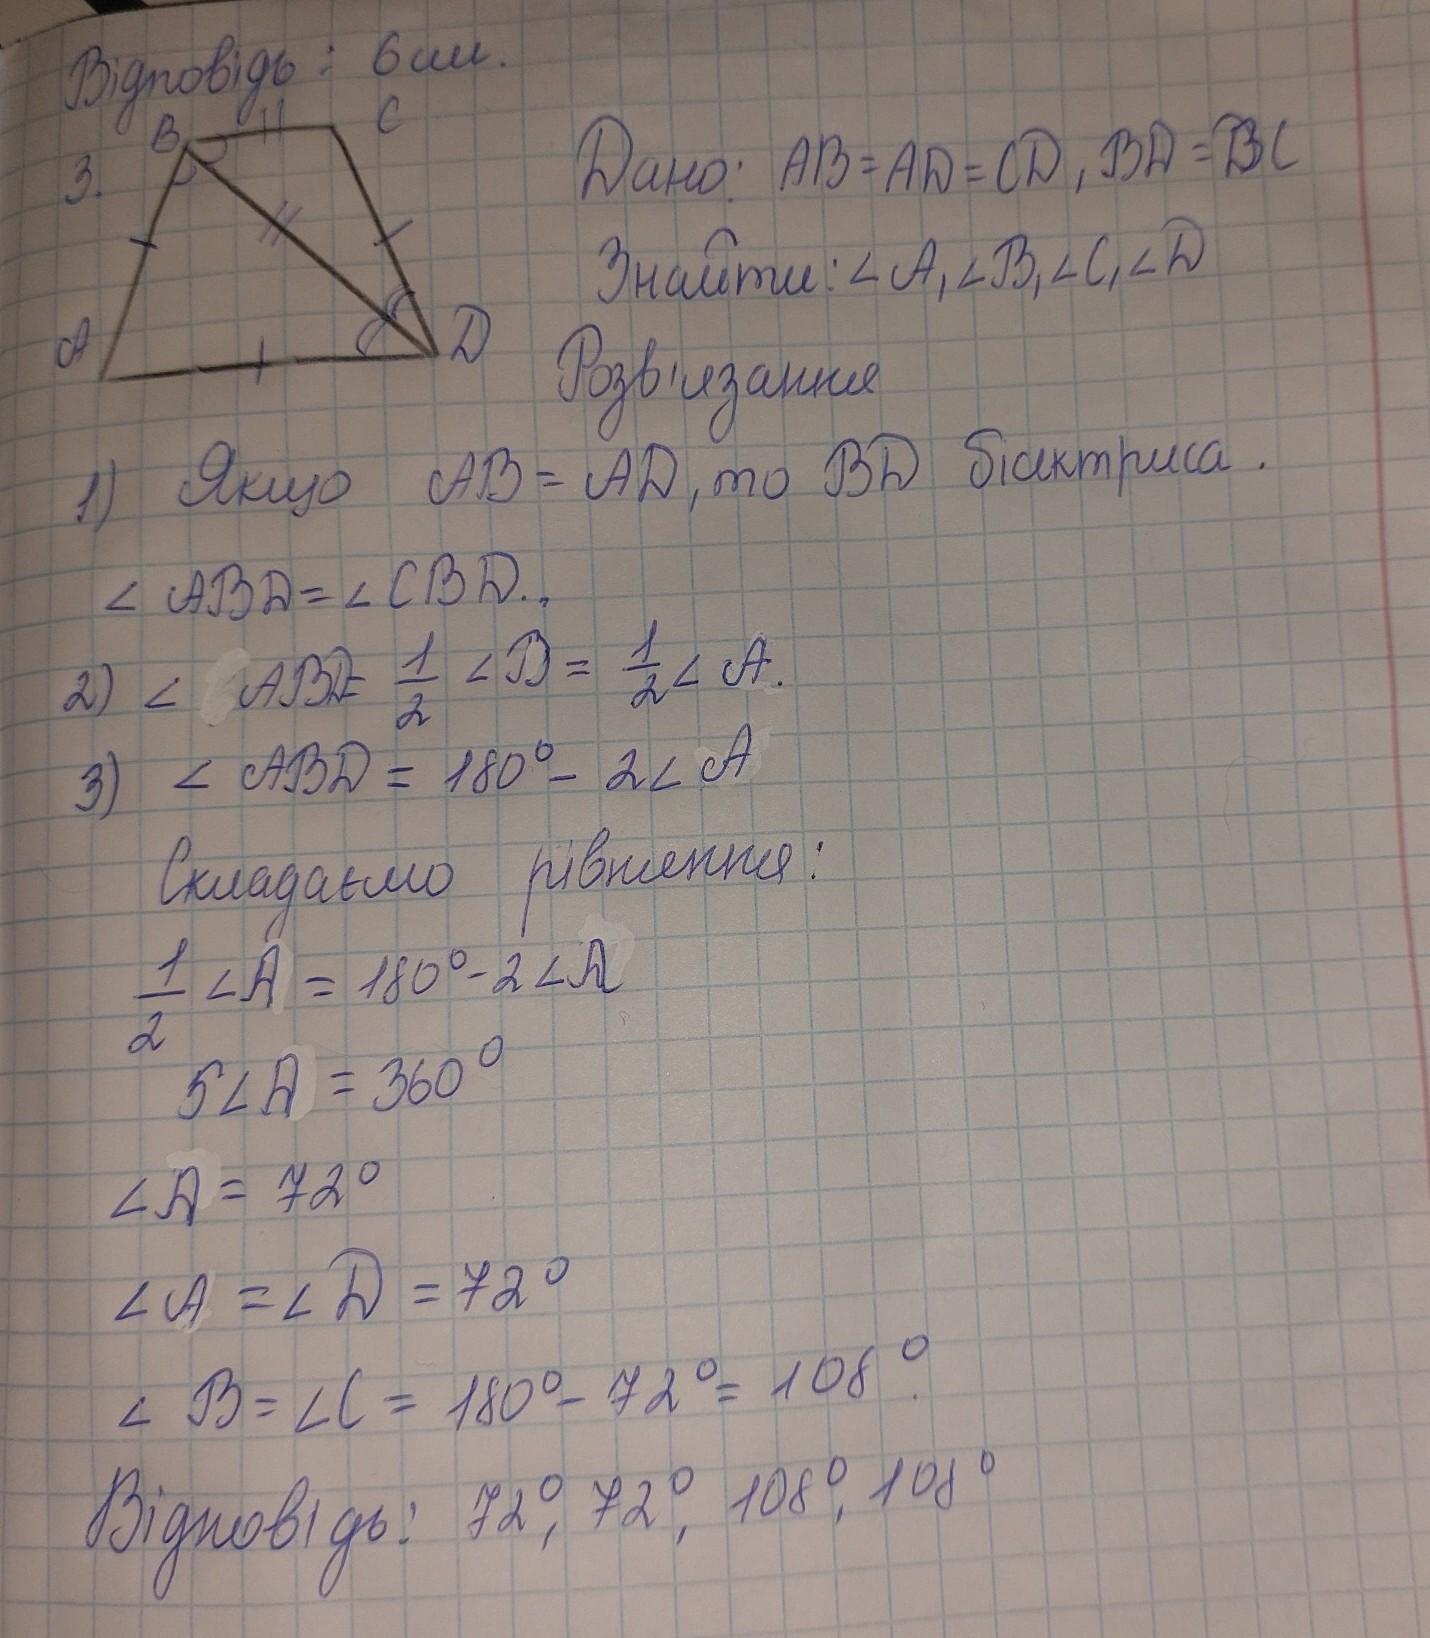 Відповідь: 6 см.
3.
B
C
A
D
Дано: AB=AD=CD, BD=BC
Знайти: ∠A, ∠B, ∠C, ∠D
Розв'язання
1) Якщо AB=AD, то BD бісектриса.
∠ABD=∠CBD.
2) ∠ABD=1/2∠B=1/2∠A.
3) ∠ABD=180°-2∠A
Складаємо рівняння:
1/2∠A=180°-2∠A
5∠A=360°
∠A=72°
∠A=∠D=72°
∠B=∠C=180°-72°=108°.
Відповідь: 72°, 72°, 108°, 108°